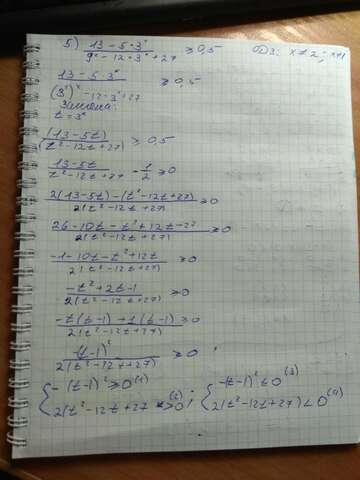 5) (13-5·3ˣ)/(9ˣ-12·3ˣ+27) ≥ 0,5 ОДЗ: x≠2; x≠1
(13-5·3ˣ)/((3ˣ)²-12·3ˣ+27) ≥ 0,5
Замена:
t=3ˣ
(13-5t)/(t²-12t+27) ≥ 0,5
(13-5t)/(t²-12t+27) - 1/2 ≥ 0
(2(13-5t)-(t²-12t+27))/(2(t²-12t+27)) ≥ 0
(26-10t-t²+12t-27)/(2(t²-12t+27)) ≥ 0
(-1-10t-t²+12t)/(2(t²-12t+27)) ≥ 0
(-t²+2t-1)/(2(t²-12t+27)) ≥ 0
(-t(t-1)+1(t-1))/(2(t²-12t+27)) ≥ 0
-(t-1)²/(2(t²-12t+27)) ≥ 0 ;
{ -(t-1)² ≥ 0 (1) ; { -(t-1)² ≤ 0 (3)
2(t²-12t+27 > 0 (2) 2(t²-12t+27) < 0 (4)